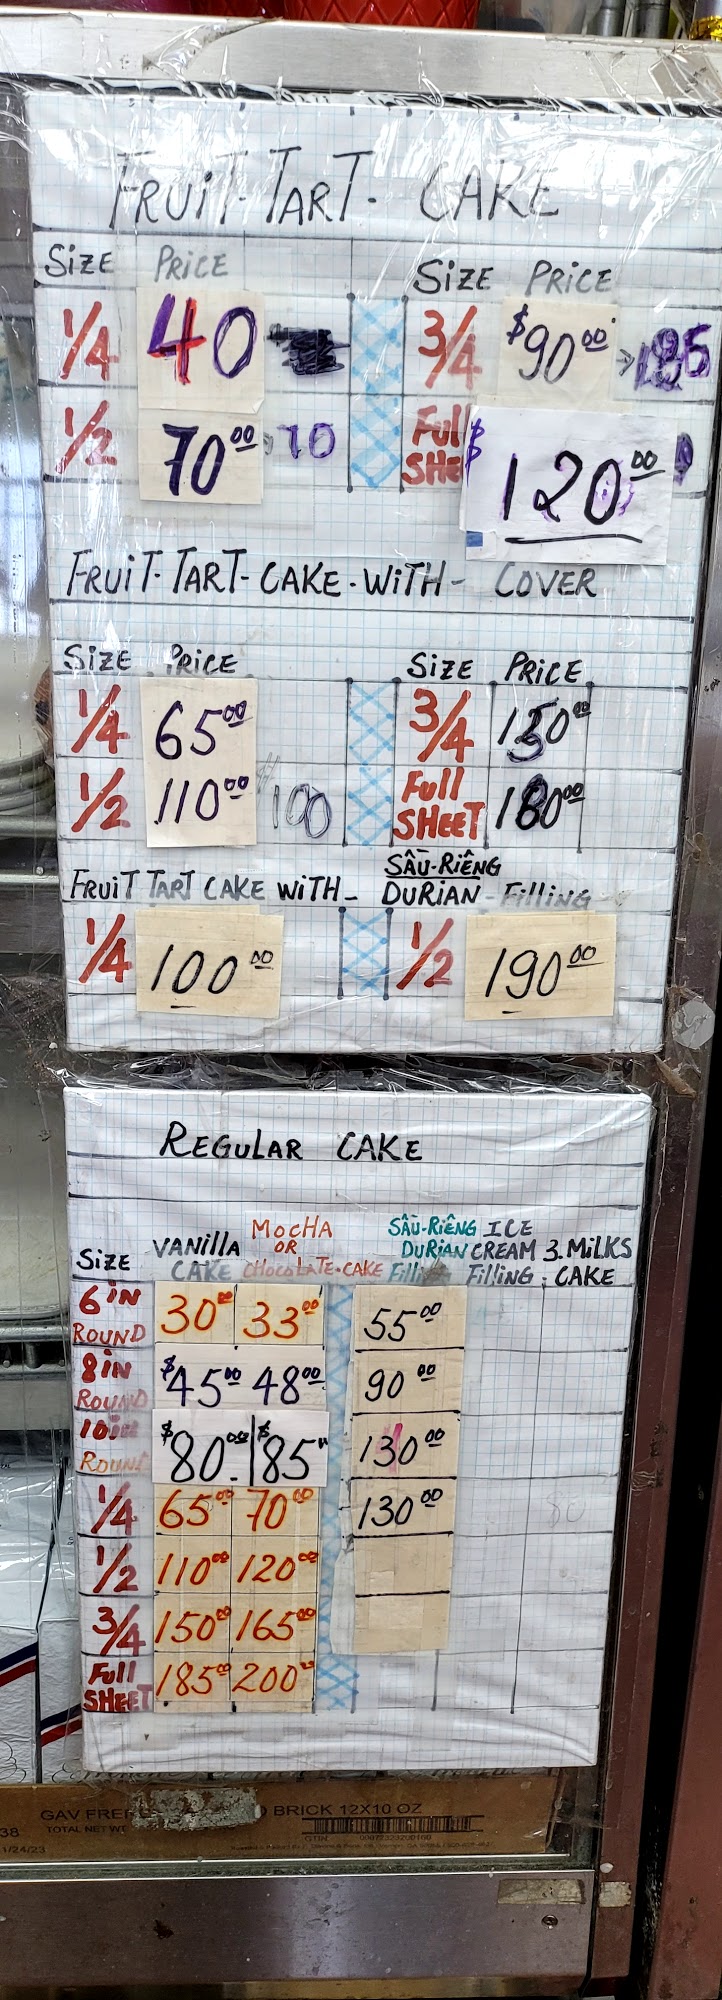 FRUIT-TART- CAKE
SIZE PRICE SIZE PRICE
1/4 40 3/4 $90.00
1/2 70.00 70 Full SHE $120.00
FRUIT-TART-CAKE-WITH- COVER
SIZE PRICE SIZE PRICE
1/4 65.00 3/4 150.00
1/2 110.00 100 Full SHEET 180.00
SẦU-RIÊNG
FRUIT TART CAKE WITH- DURIAN - Filling
1/4 100.00 1/2 190.00
REGULAR CAKE
SIZE VANillA CAKE MOCHA OR CHOCOLATE-CAKE SẦU-RIÊNG DURIAN Filling ICE CREAM Filling 3.MILKS CAKE
6 IN ROUND 30.00 33.00 55.00
8 IN ROUND $45.00 48.00 90.00
10 IN ROUND $80.00 $85 130.00
1/4 65.00 70.00 130.00 80
1/2 110.00 120.00
3/4 150.00 165.00
Full SHEET 185.00 200.00
BRICK 12X10 OZ
TOTAL NET WT
GTIN
38
1/24/23